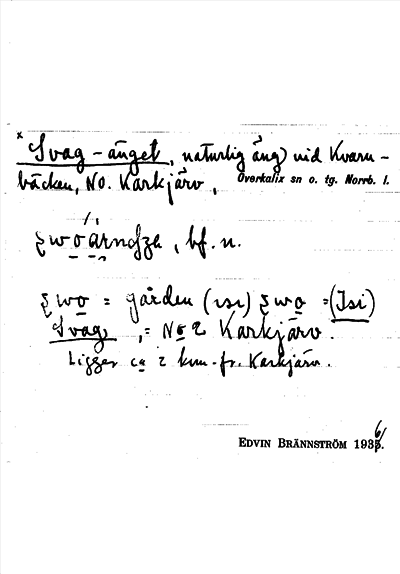 × Svag-änget, naturlig äng vid Kvarn-
bäcken, NO. Karkjärv,
Överkalix sn o. tg. Norrb. l.
bf. n.
= gården (ısı) = (Isi)
Svag, = No 2 Karkjärv.
Ligger ca 2 km. fr. Karkjärv.
EDVIN BRÄNNSTRÖM 1936.